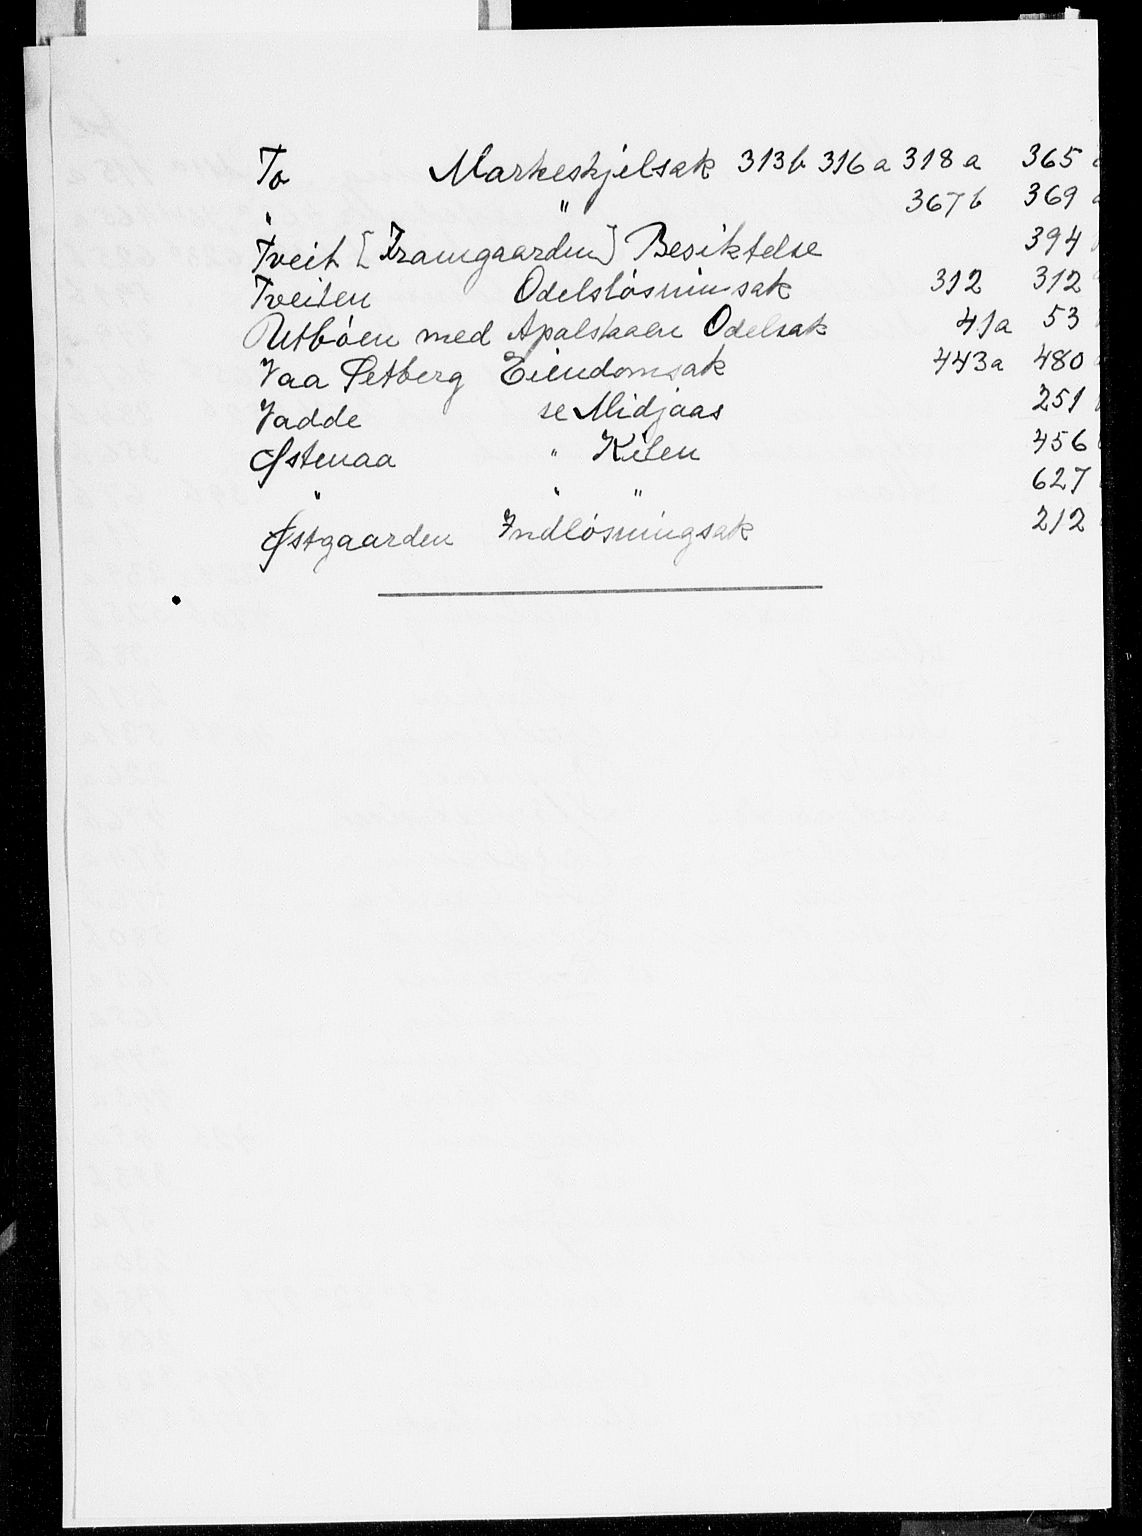 To Markeskjelsak 313b 316a 318a 365
" " 367b 369
Tveit [Framgaarden] Besiktelse 394
Tveiten Odelsløsninsak 312 312
Utbøen med Apalstaaen Odelsak 41a 53
Vaa Setberg Eiendomsak 443a 480
Vadde se Midjaas 251
Østenaa " Kilen 456
" " " 627
Østgaarden Indløsningsak 212